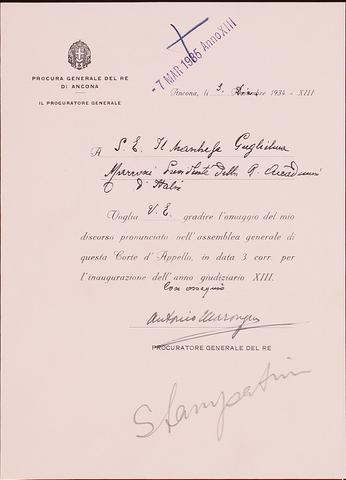 PROCURA GENERALE DEL RE
DI ANCONA
IL PROCURATORE GENERALE
- 7 MAR 1935 Anno XIII
Ancona, li 3 1934 - XIII
A S. E. Il Marchese Guglielmo
Marconi Presidente della R. Accademia
d'Italia
Voglia V. E. gradire l'omaggio del mio
discorso pronunciato nell'assemblea generale di
questa Corte d'Appello, in data 3 corr. per
l'inaugurazione dell'anno giudiziario XIII.
Con ossequio
Antonio Marongiu
PROCURATORE GENERALE DEL RE
Stampati